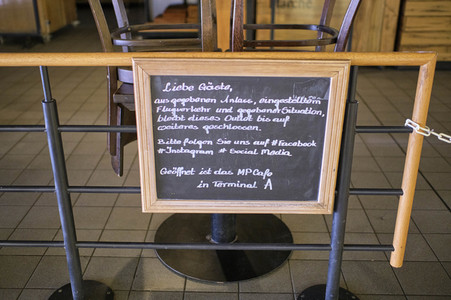 Liebe Gäste,
aus gegebenen Anlass, eingestelltem
Flugverkehr und gegebener Situation,
bleibt dieses Outlet bis auf
weiteres geschlossen.
Bitte folgen Sie uns auf #Facebook
#Instagram # Social Media
Geöffnet ist das MP Cafe
in Terminal A